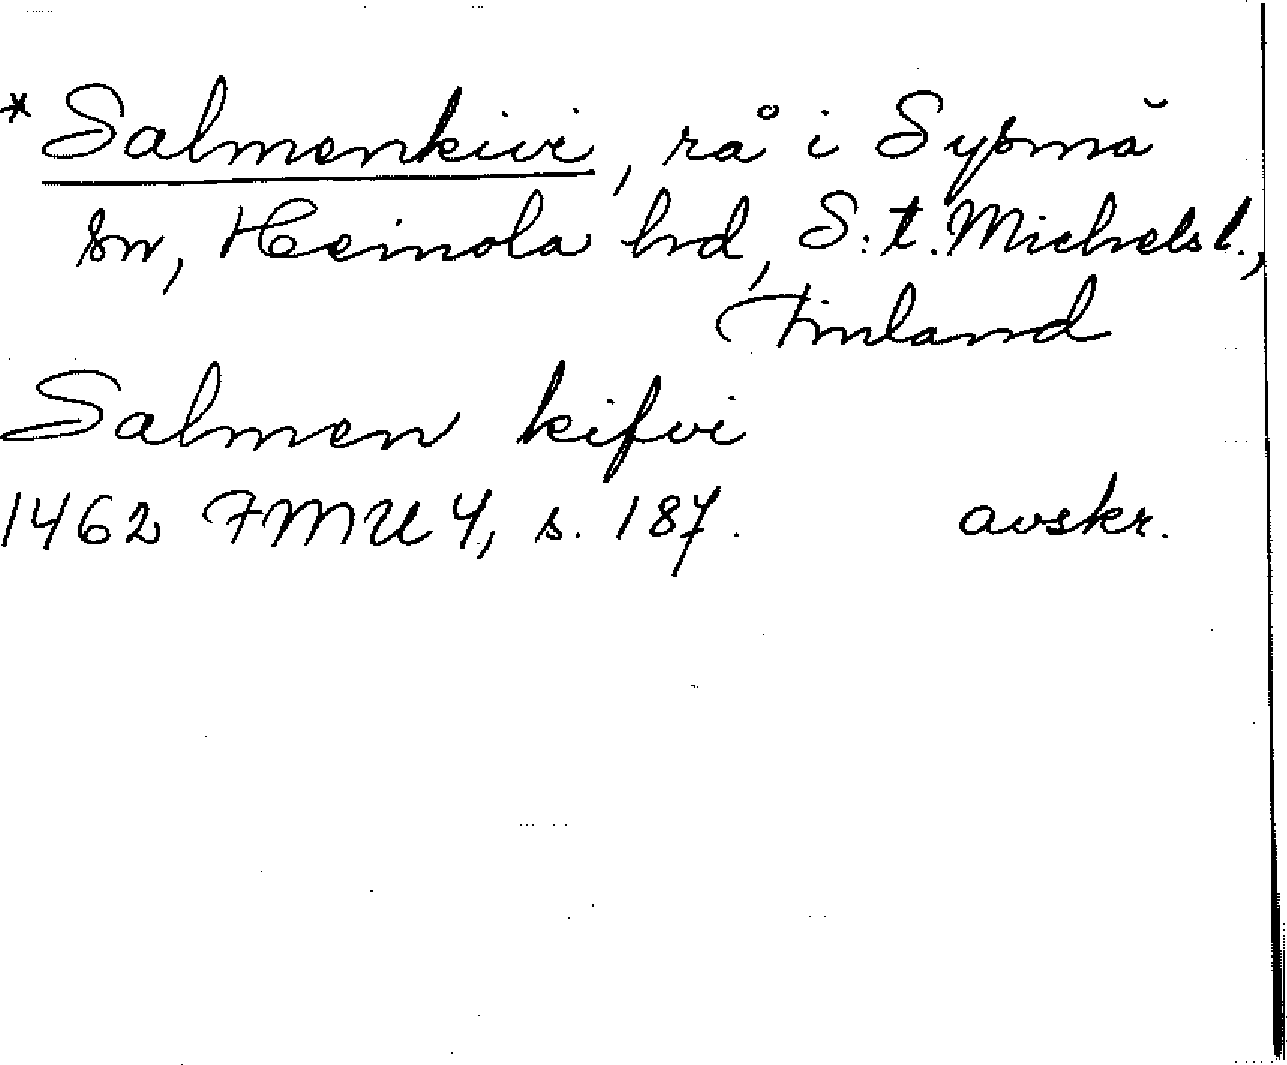 *Salmenkivi, rå i Sysmä
sn, Heinola hd, S:t. Michels l.,
Finland
Salmen kifvi
1462 FMU 4, s. 187. avskr.